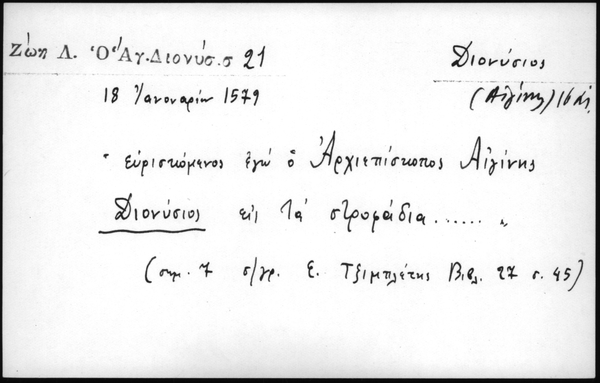 Ζώη Λ. Ὁ Ἅγ. Διονύσ. σ 21
Διονύσιος
18 Ἰανουαρίου 1579
(Αἰγίνης) 16 αἰ.
" εὑρισκόμενος ἐγώ ὁ Ἀρχιεπίσκοπος Αἰγίνης
Διονύσιος εἰς τά στροφάδια...... "
(σημ. 7 σ/γρ. Ε. Τζιμπλέτης Βιβλ. 27 σ. 45)